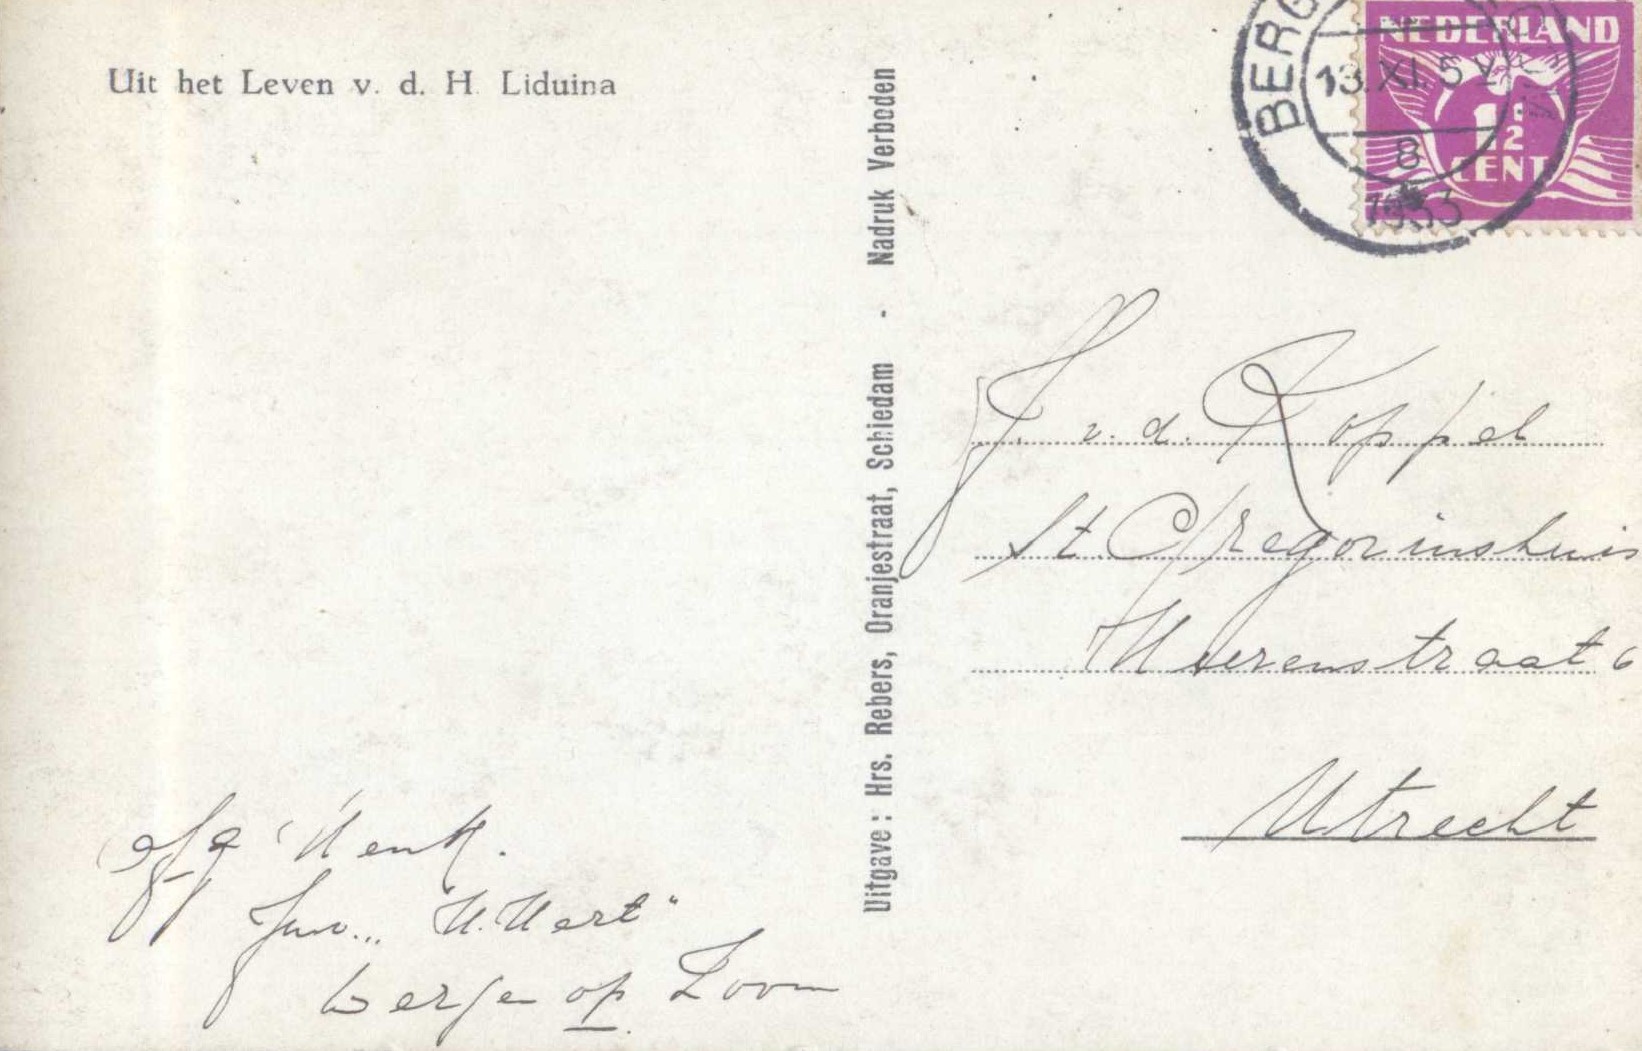 Uit het Leven v. d. H. Liduina
Uitgave: Hrs. Rebers, Oranjestraat, Schiedam - Nadruk Verboden
BERG
13.XI.5 V
8
1933
NEDERLAND
1½
CENT
J. v. d. Koppel
St. Gregoriushuis
Heerenstraat 6
Utrecht
Henk.
Juv. "H. Hart"
Bergen op Zoom